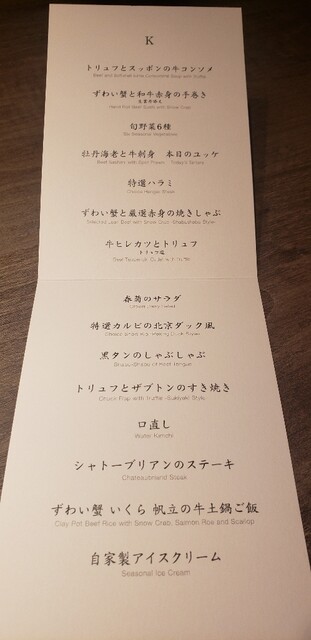 K
トリュフとスッポンの牛コンソメ
Beef and Softshell turtle Consommé Soup with truffle
ずわい蟹と和牛赤身の手巻き
Hand Roll Beef Sushi with Snow Crab
旬野菜6種
Six Seasonal Vegetables
牡丹海老と牛刺身 本日のユッケ
Beef Sashimi with Botan Prawn Today's Tartare
特選ハラミ
Choice Hanger Steak
ずわい蟹と厳選赤身の焼きしゃぶ
Selected Lean Beef with Snow Crab -Shabushabu Style-
牛ヒレカツとトリュフ
トリュフ塩
春菊のサラダ
特選カルビの北京ダック風
黒タンのしゃぶしゃぶ
トリュフとザブトンのすき焼き
Chuck Flap with Truffle -Sukiyaki Style-
口直し
Water Kimchi
シャトーブリアンのステーキ
Chateaubriand Steak
ずわい蟹 いくら 帆立の牛土鍋ご飯
Clay Pot Beef Rice with Snow Crab, Salmon Roe and Scallop
自家製アイスクリーム
Seasonal Ice Cream